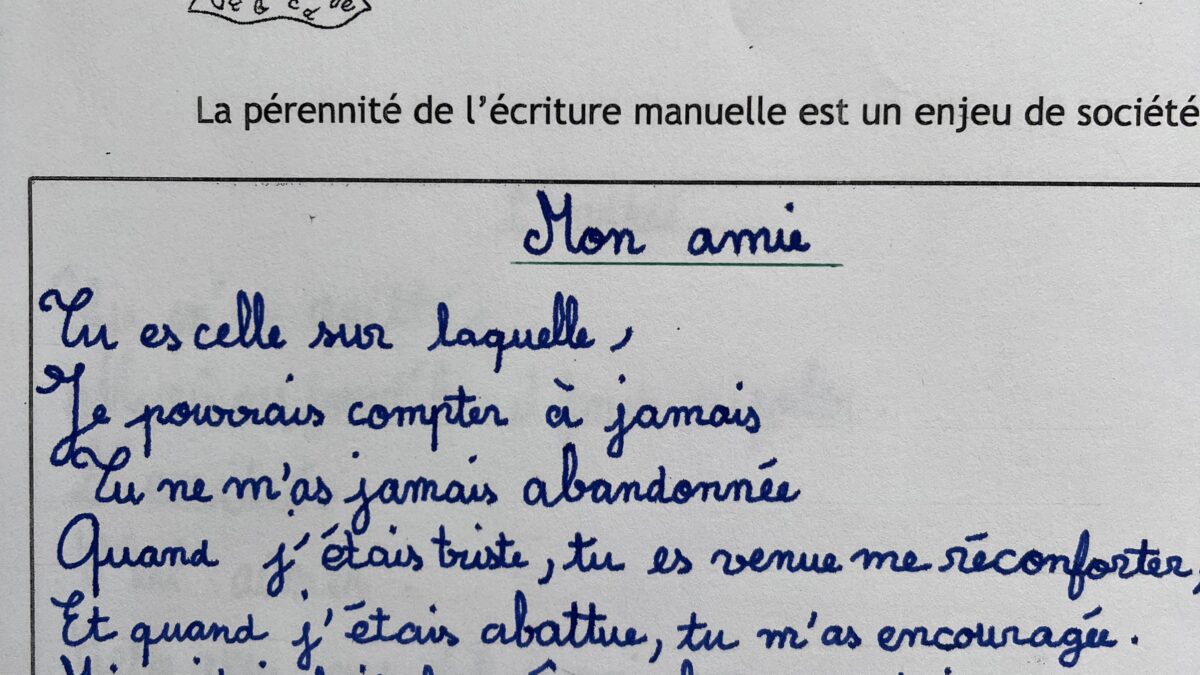 La pérennité de l'écriture manuelle est un enjeu de société
Mon amie
Tu es celle sur laquelle,
Je pourrais compter à jamais
Tu ne m'as jamais abandonnée
Quand j'étais triste, tu es venue me réconforter,
Et quand j'étais abattue, tu m'as encouragée.